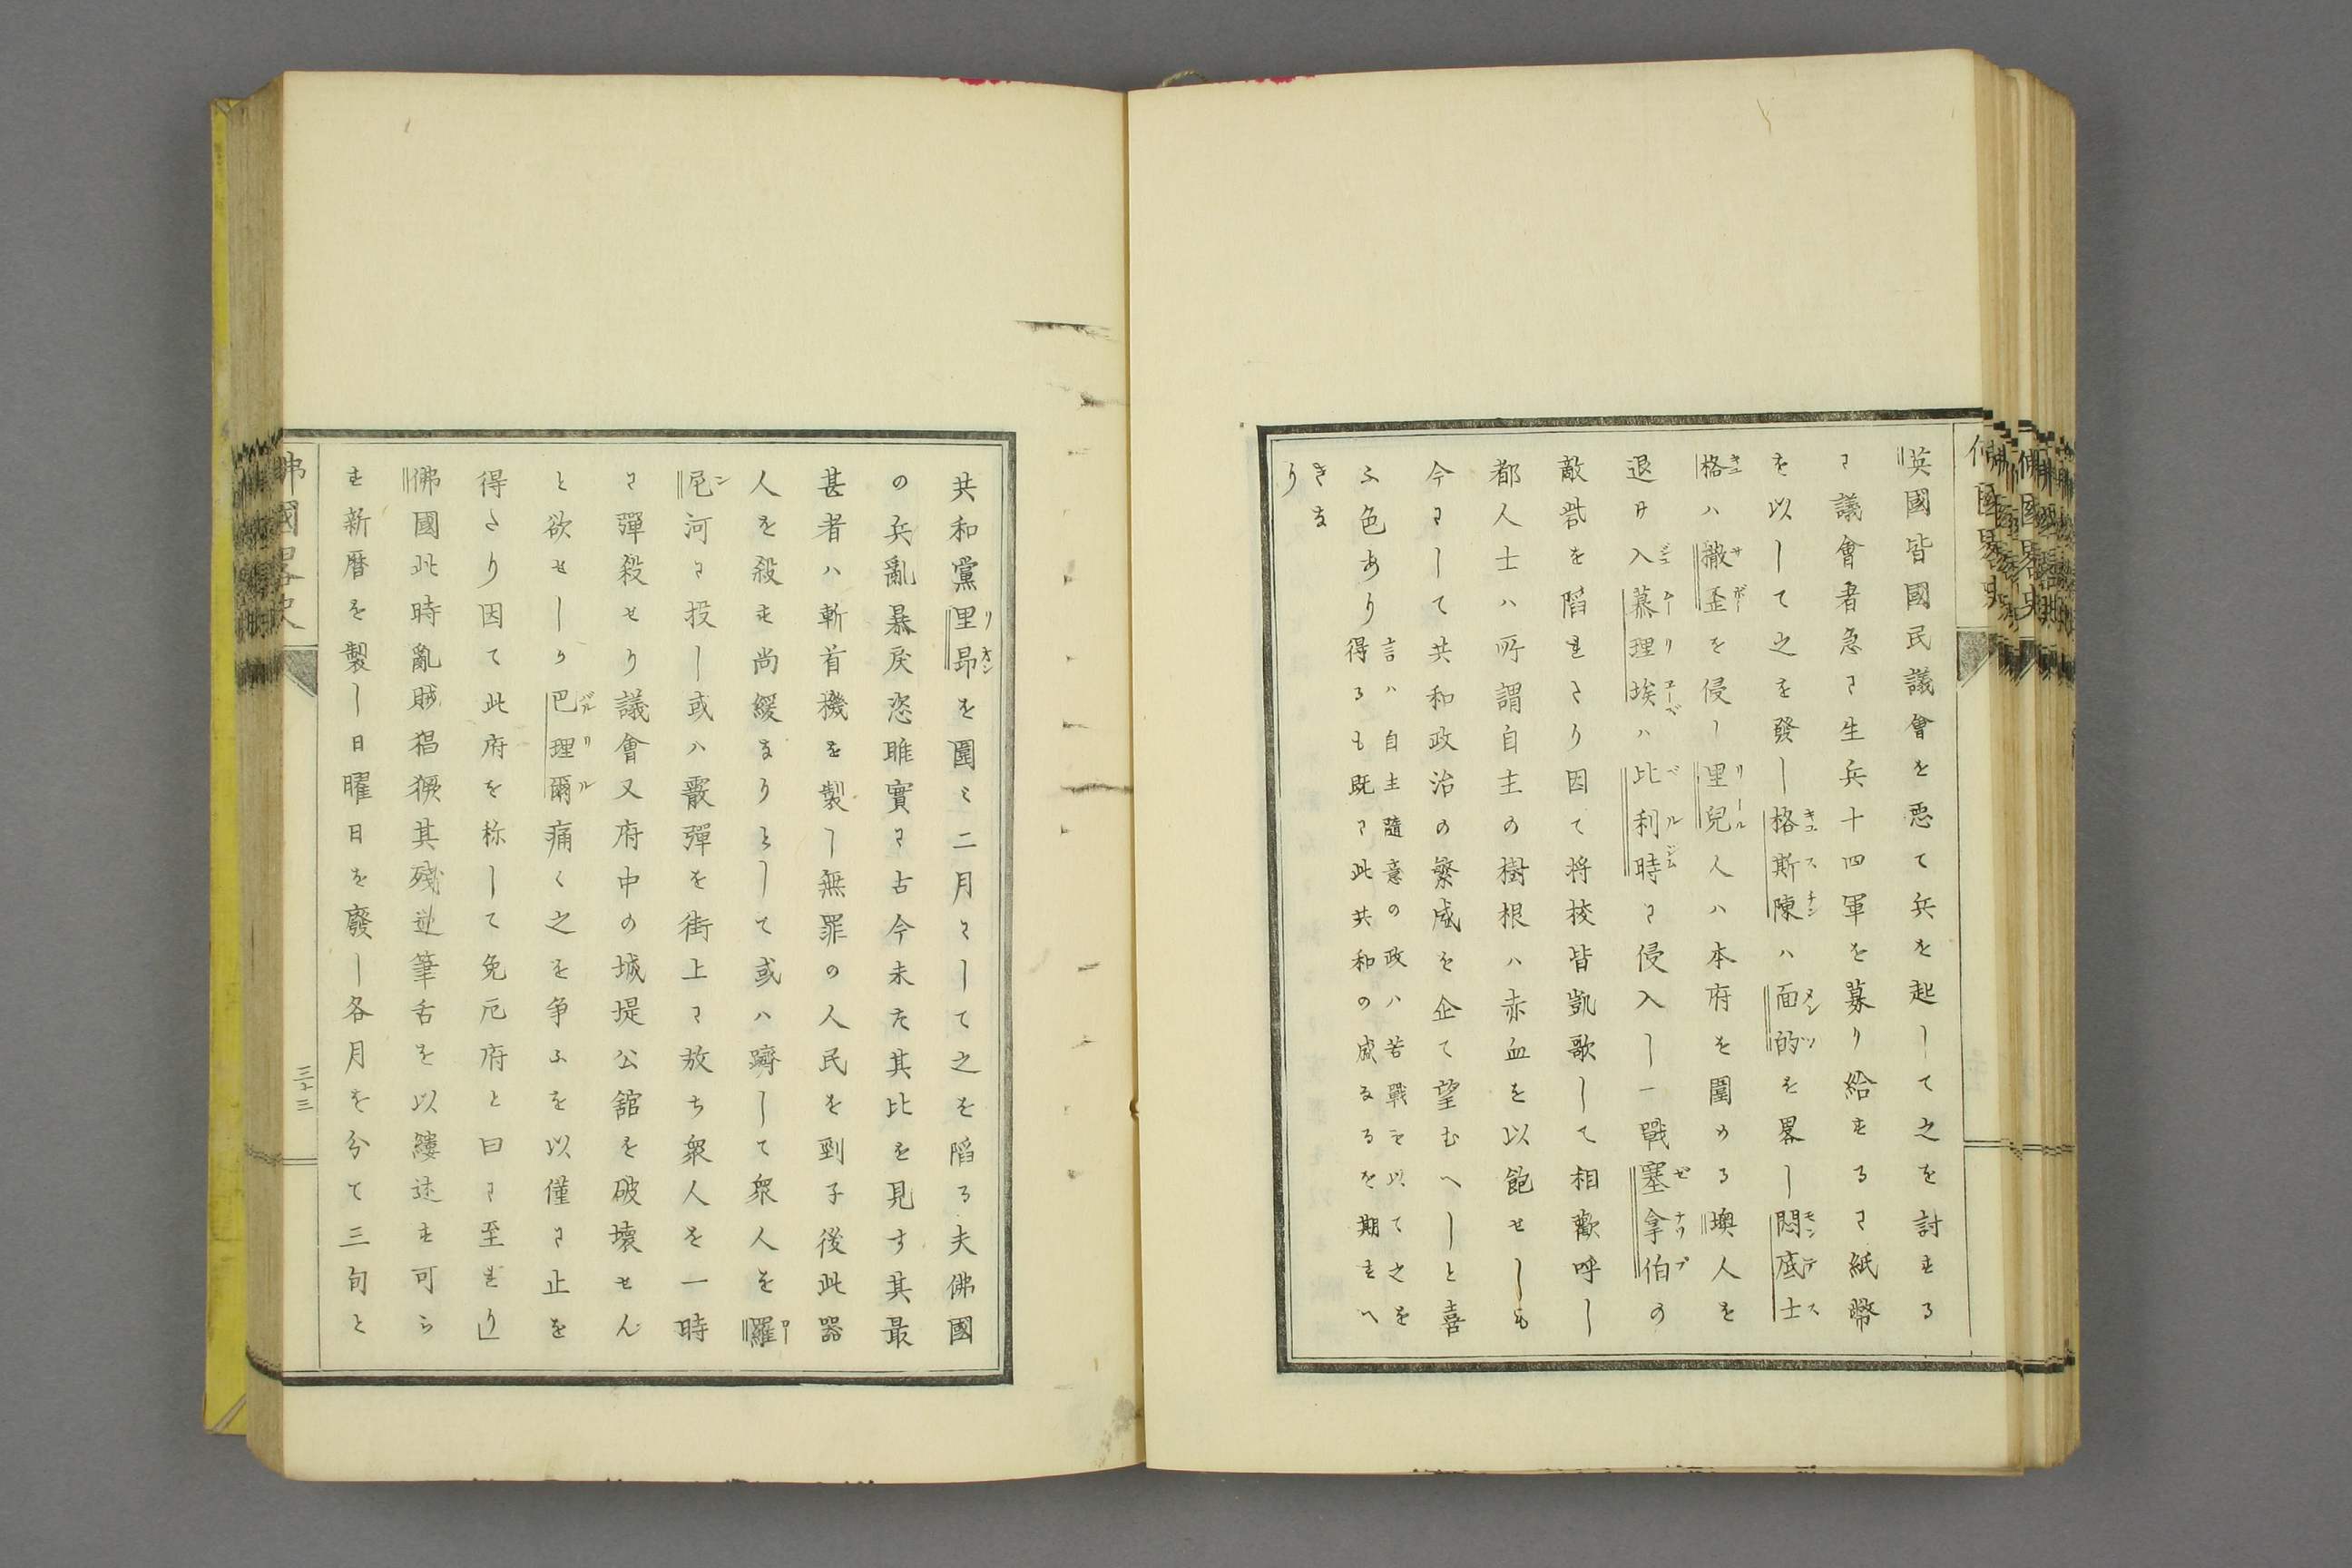 英國皆國民議會を悪て兵を起して之を討する
に議會者急に生兵十四軍を募り給するに紙幣
を以して之を發し格斯陳ハ面的を畧し悶底士
キュスチン
メンツ
モンテス
格ハ撒歪を侵し里兒人ハ本府を圍める墺人を
キュ
サボー
リール
退け入慕理埃ハ比利時に侵入し一戰塞拿伯の
ジュムーリエーベ
ベルジム
ゼナップ
敵砦を陷れたり因て将校皆凱歌して相歡呼し
都人士ハ所謂自主の樹根ハ赤血を以飽せしも
今にして共和政治の繁盛を企て望むへしと喜
ふ色あり
言ハ自主隨意の政ハ苦戰を以て之を
得るも既に此共和の盛なるを期すへ
きな
り
佛國畧史
共和黨里昂を圍ミ二月にして之を陷る夫佛國
リオン
の兵亂暴戻恣睢實に古今未た其比を見す其最
甚者ハ斬首機を製し無罪の人民を剄す後此器
人を殺す尚緩なりとして或ハ躋して衆人を羅
ロー
尼河に投し或ハ霰彈を街上に放ち衆人を一時
ン
に彈殺せり議會又府中の城堤公舘を破壞せん
と欲せしか巴理爾痛く之を争ふを以僅に止を
バルリル
得たり因て此府を称して免厄府と曰に至れり」
佛國此時亂賊猖獗其殘逆筆舌を以縷述す可ら
す新曆を製し日曜日を廢し各月を分て三旬と
佛國畧史
三十三